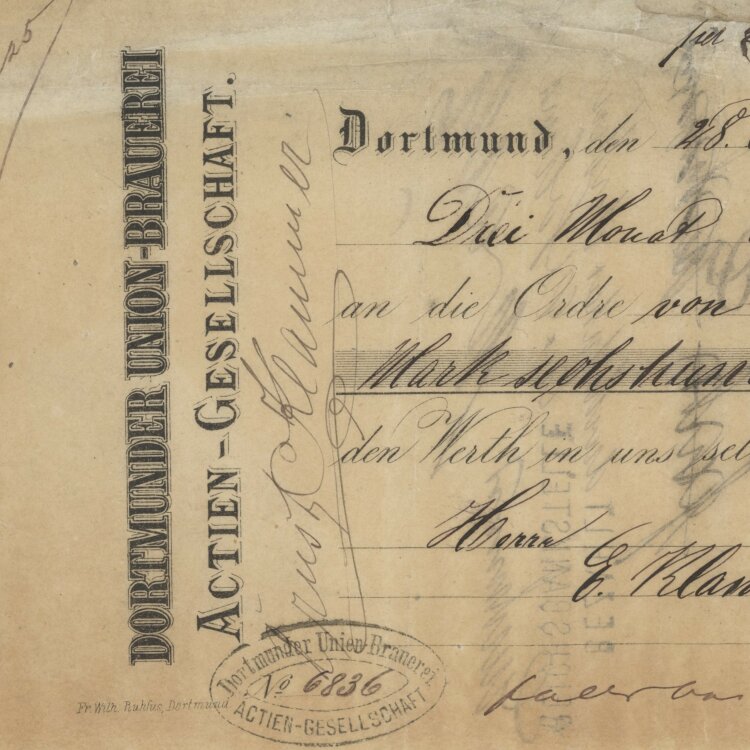 DORTMUNDER UNION-BRAUEREI
ACTIEN-GESELLSCHAFT.
Ernst Klammer
Dortmund, den 28.
Drei Monat
an die Ordre von
Mark sechshun
den Werth in uns sel
Herrn
E. Klam
Dortmunder Union Brauerei
No 6836
ACTIEN-GESELLSCHAFT
Fr. Wilh. Ruhfus, Dortmund